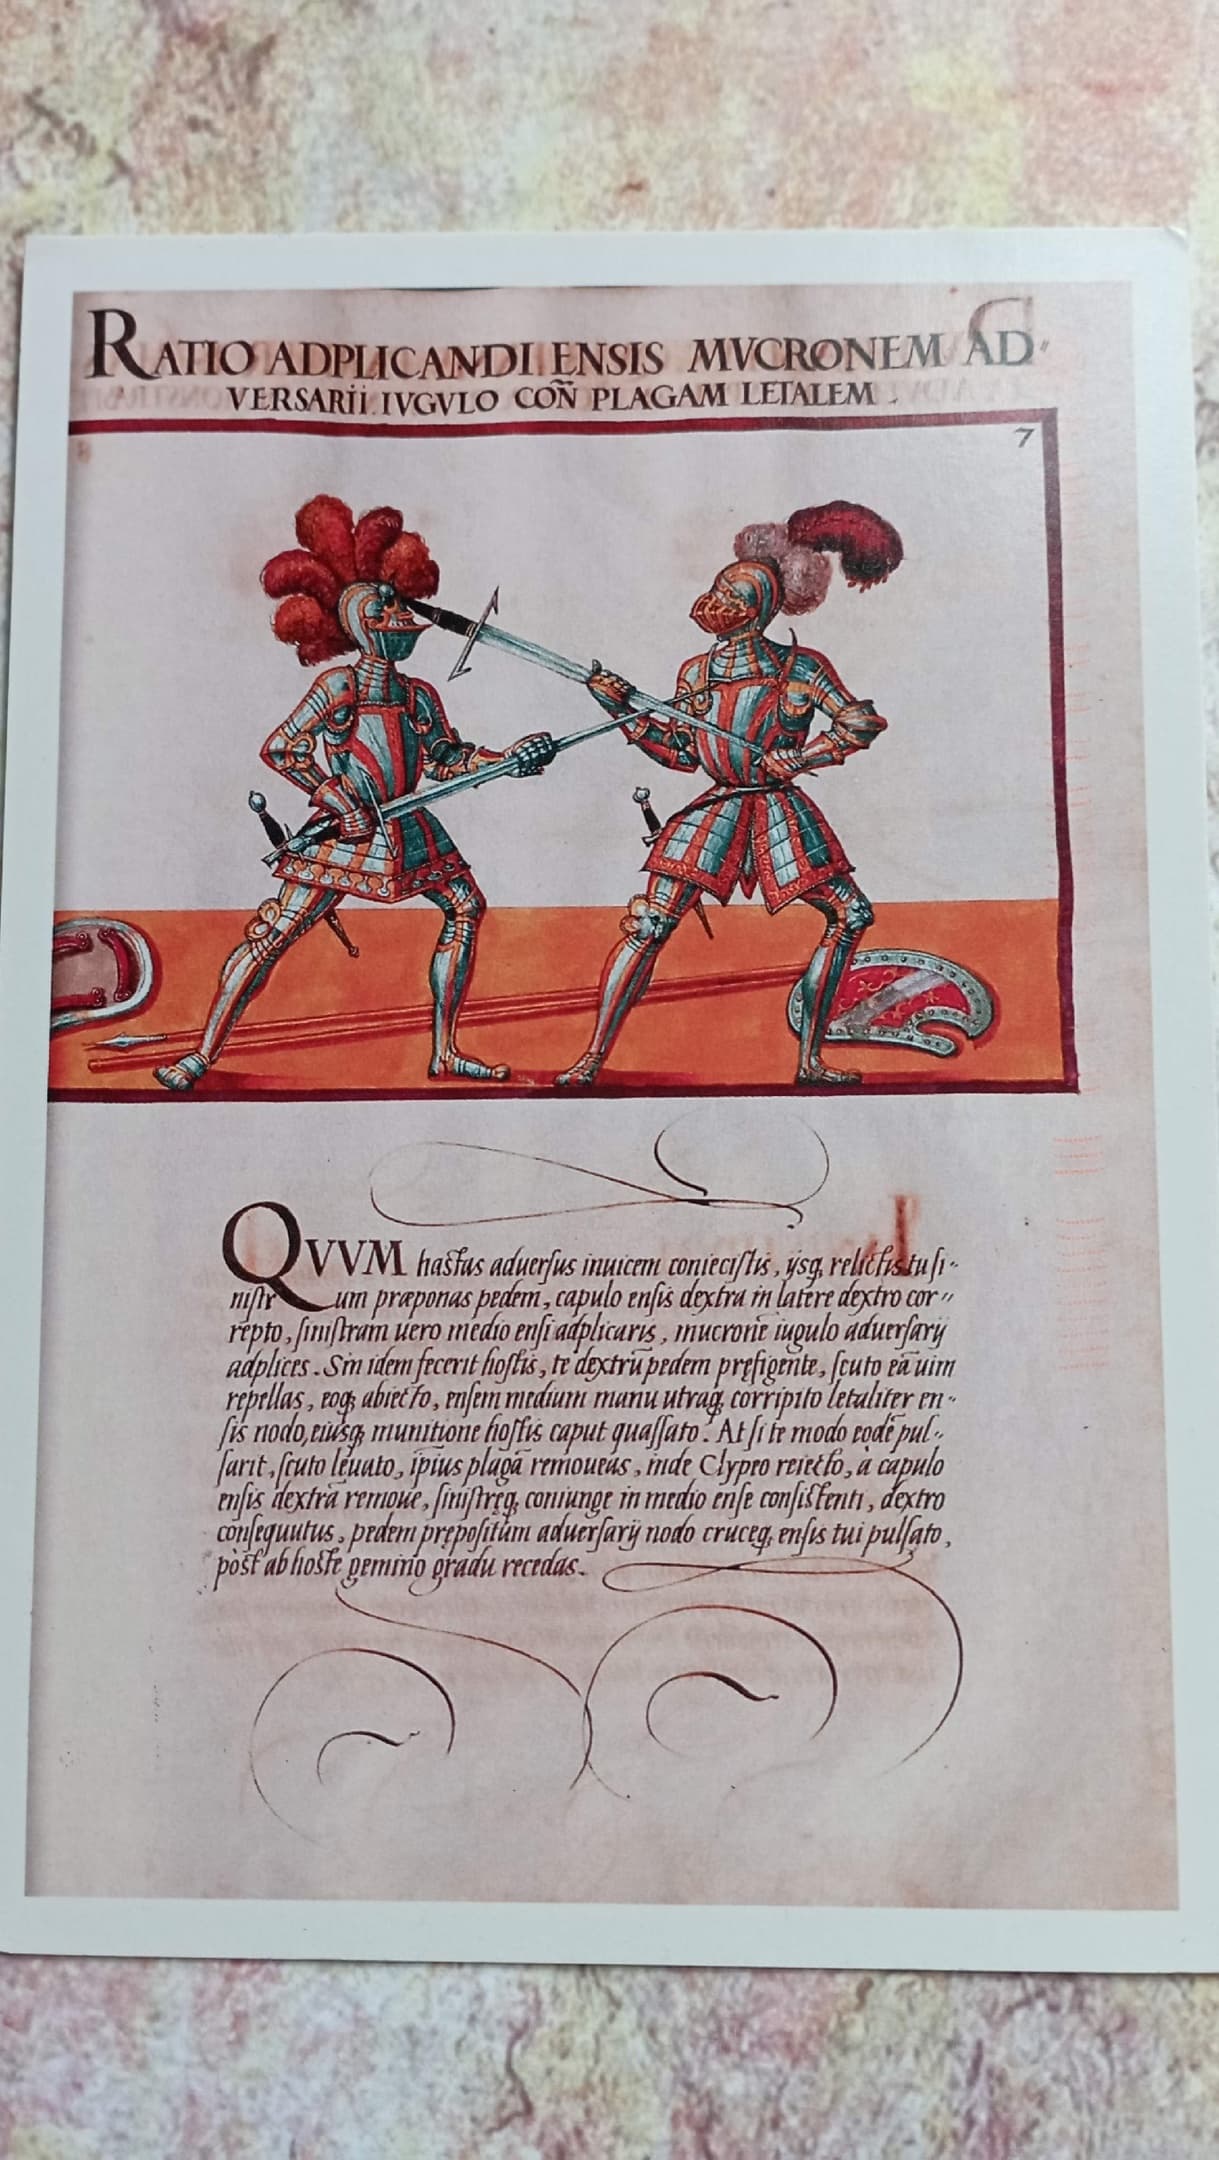 RATIO ADPLICANDI ENSIS MVCRONEM AD⸗
VERSARIJ IVGVLO COÑ PLAGAM LETALEM .
7
QVVM hastas aduersus inuicem coniecistis, ijsq; relictis tu si⸗
nistrum præponas pedem, capulo ensis dextra in latere dextro cor⸗
repto, sinistram uero medio ensi adplicaris, mucronē iugulo aduersarij
adplices. Sin idem fecerit hostis, te dextrū pedem pręfigente, scuto eā uim
repellas, eoq; abiecto, ensem medium manu utraq; corripito letaliter en⸗
sis nodo, eiusq; munitione hostis caput quassato. At si te modo eodē pul⸗
sarit, scuto leuato, ipius plagā remoueas, inde Clypeo reiecto, à capulo
ensis dextrā remoue, sinistręq; coniunge in medio ense consistenti, dextro
consequutus, pedem prępositum aduersarij nodo cruceq; ensis tui pulsato,
pòst ab hoste gemino gradu recedas.